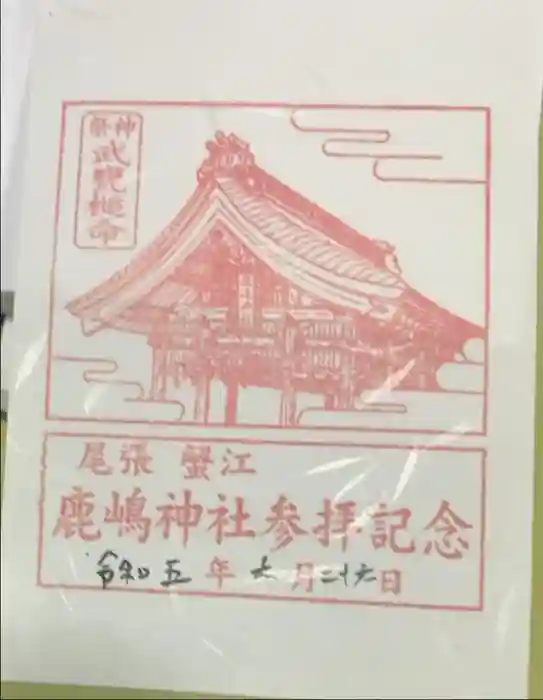 神
祭
武甕槌命
尾張 蟹江
鹿嶋神社参拝記念
令和五年六月二十六日